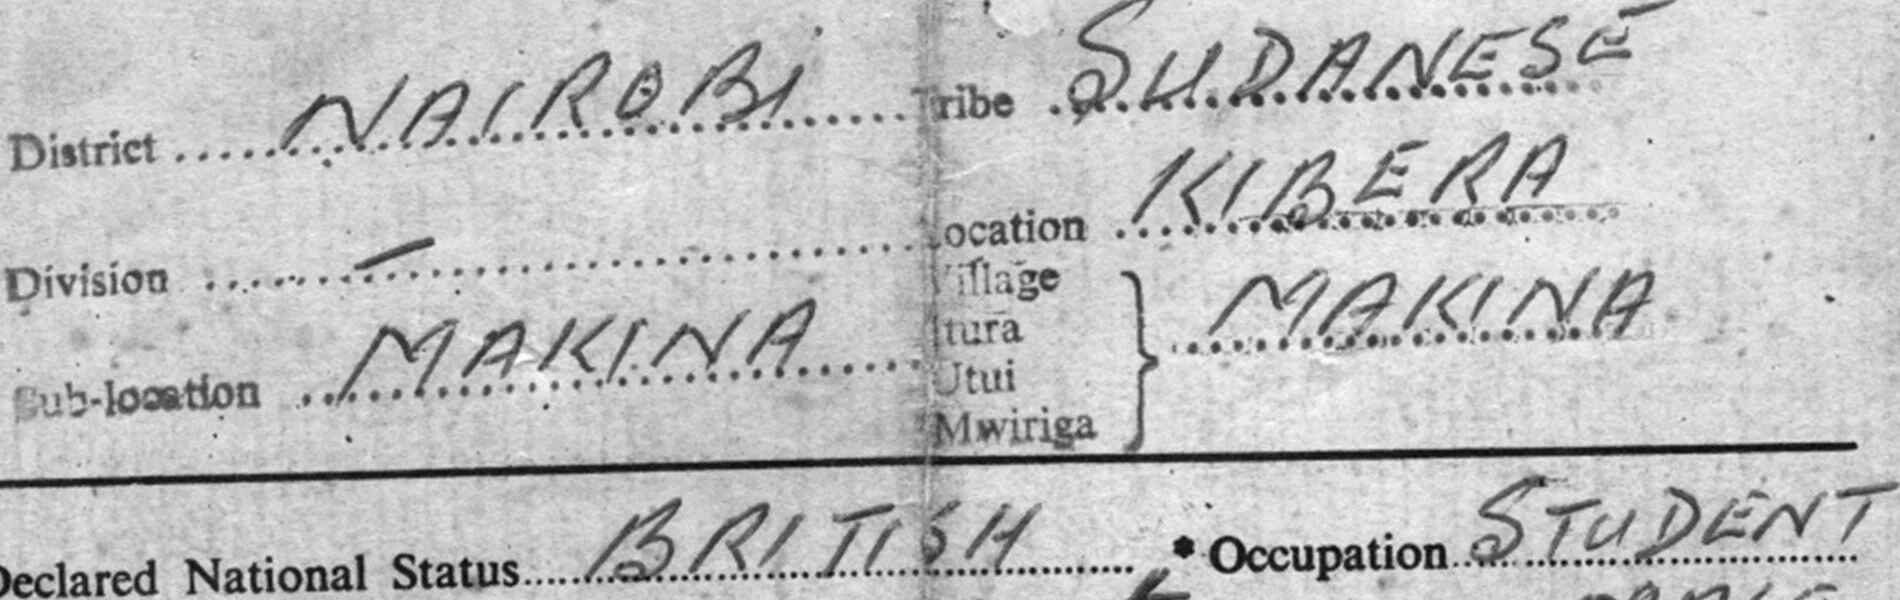 District NAIROBI Tribe SUDANESE
Division – Location KIBERA
Village
Sub-location MAKINA Itura MAKINA
Utui
Mwiriga
Declared National Status BRITISH * Occupation STUDENT